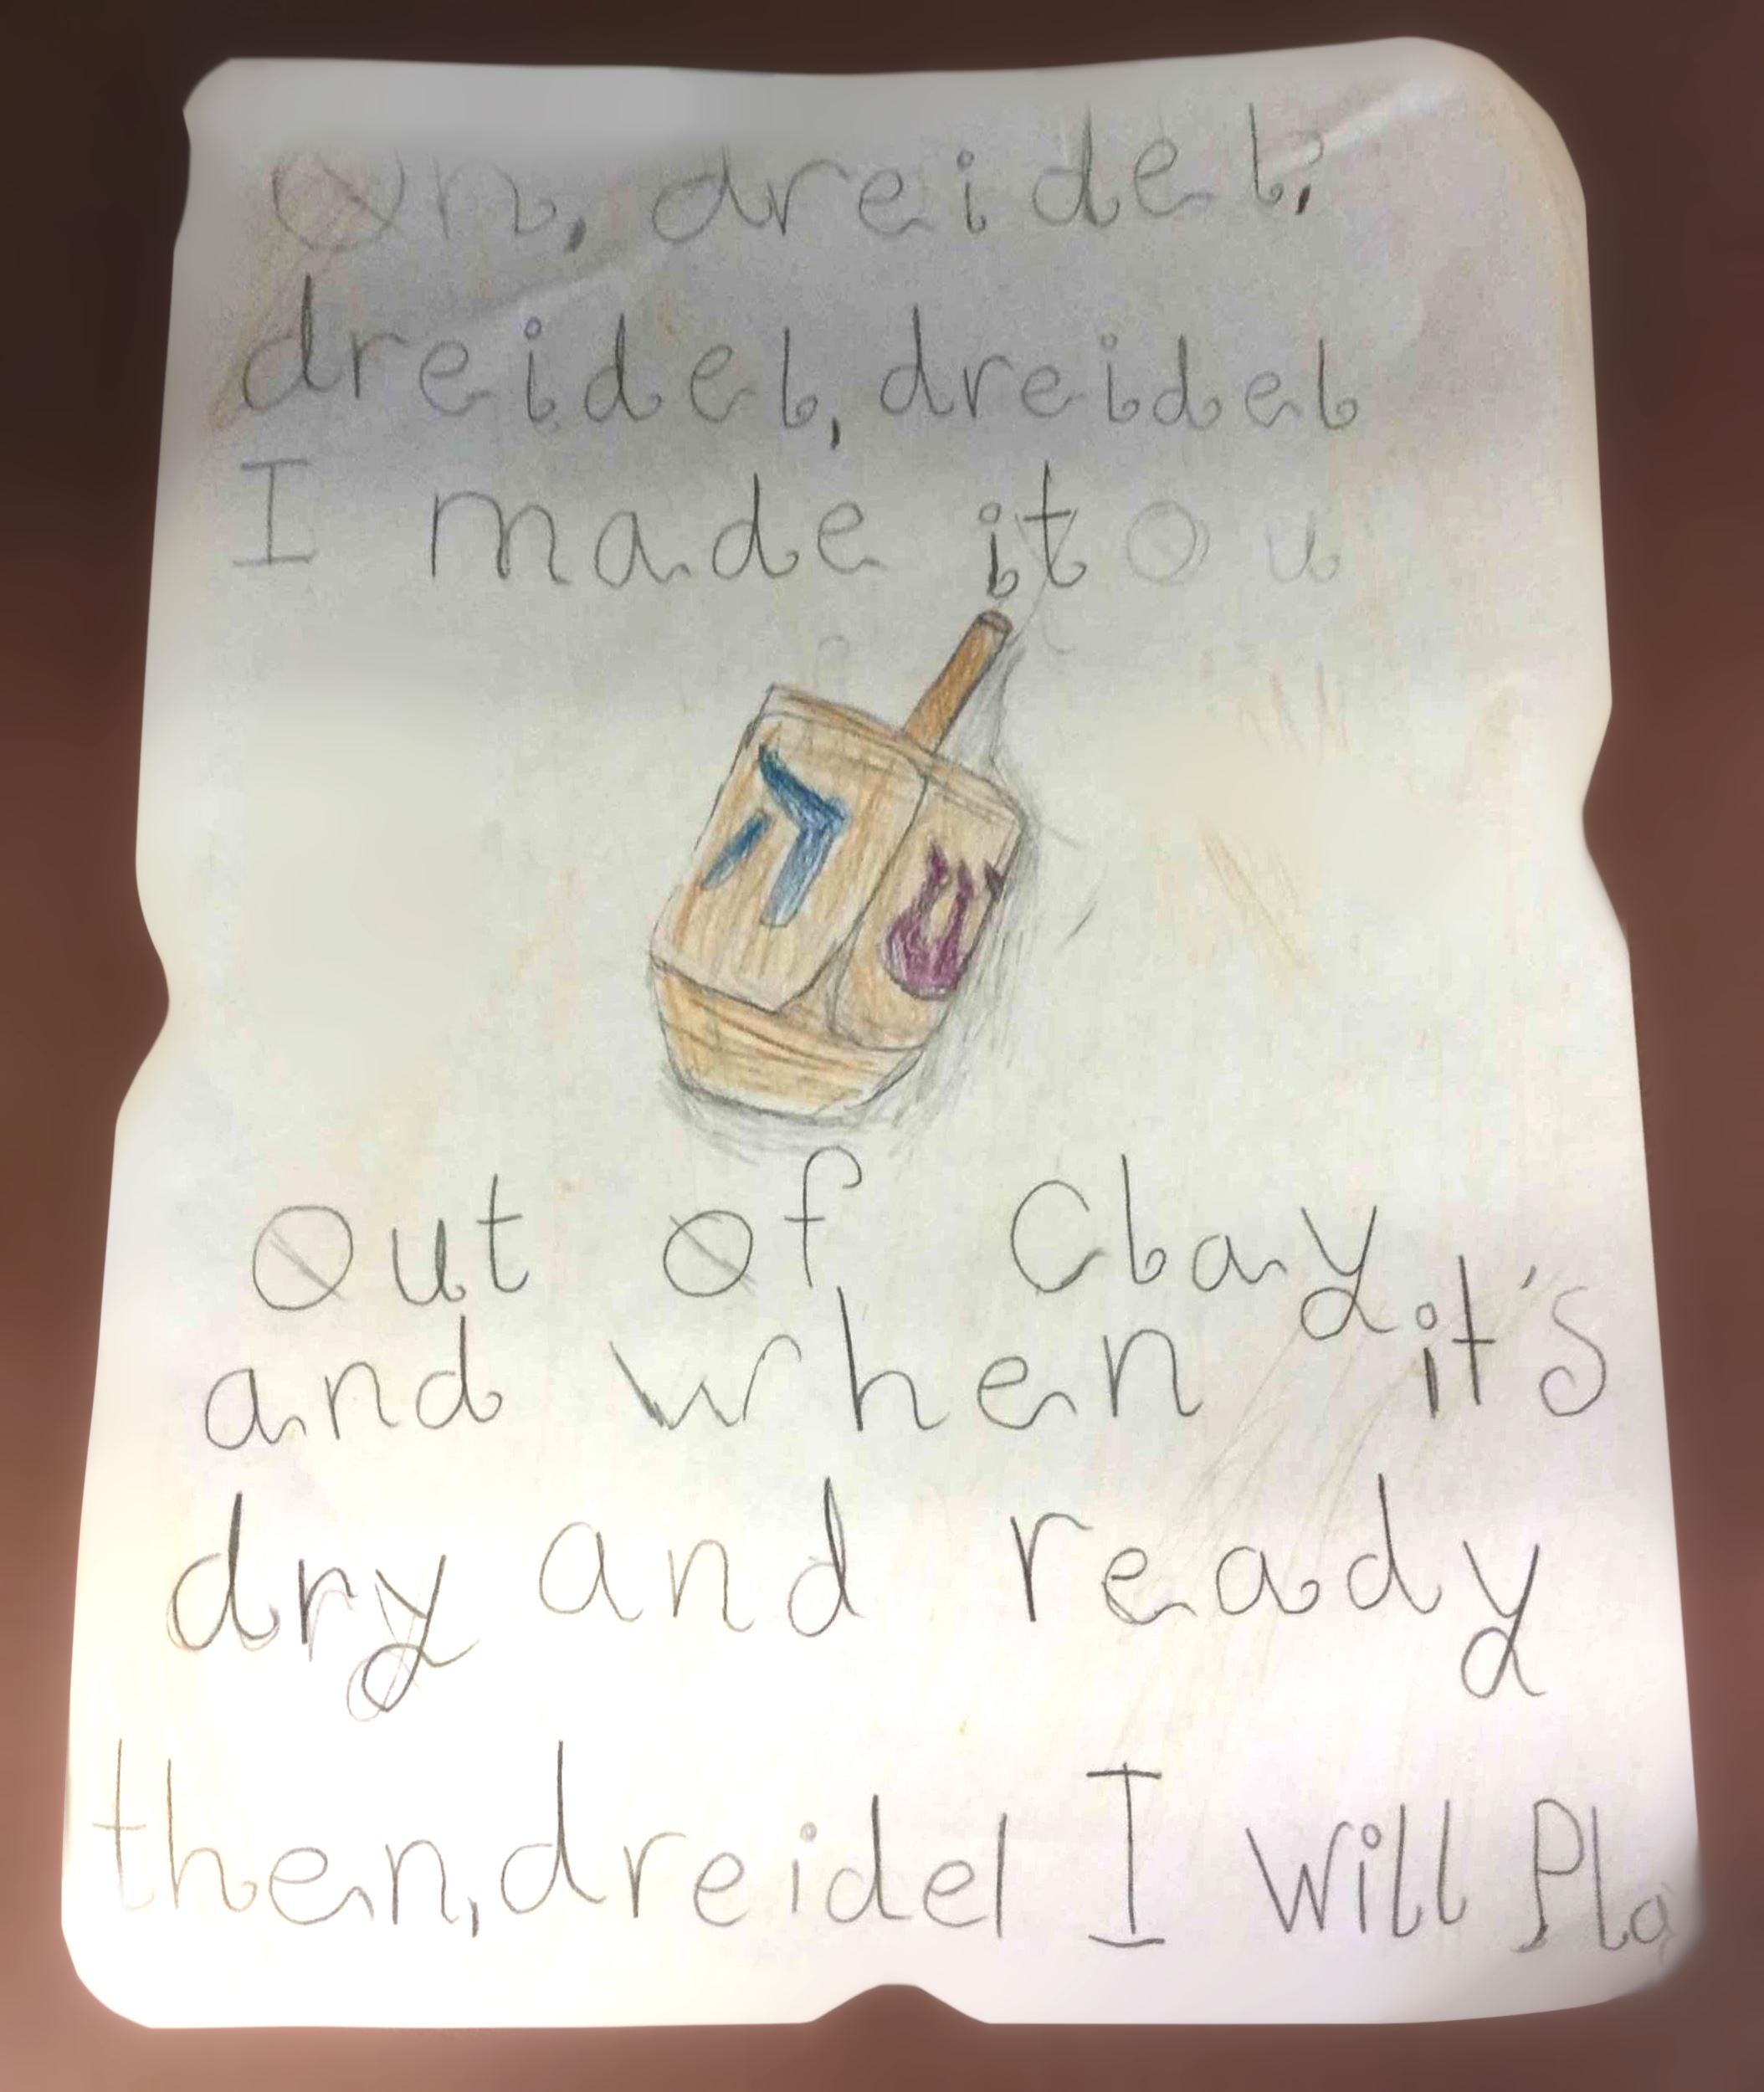 Oh, dreidel,
dreidel, dreidel
I made it ou
ה ש
out of Clay
and when it's
dry and ready
then, dreidel I will Pla